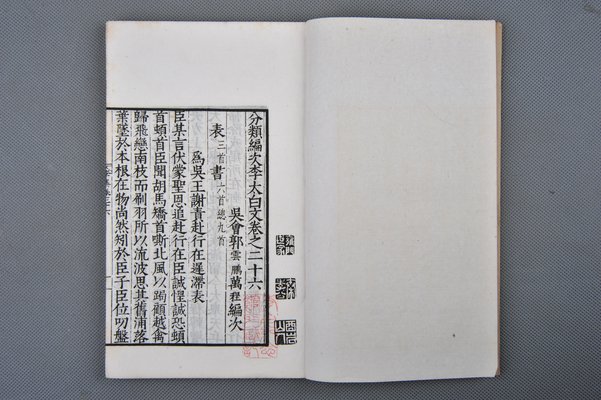 分類編次李太白文卷之二十六
吳會郭雲鵬萬程編次
表三首書六首總九首
為吳王謝責赴行在遲滯表
臣某言伏蒙聖恩追赴行在臣誠惶誠恐頓
首頓首臣聞胡馬矯首嘶北風以跼顧越禽
歸飛戀南枝而刷羽所以流波思其舊浦落
葉墜於本根在物尚然矧於臣子臣位叨盤